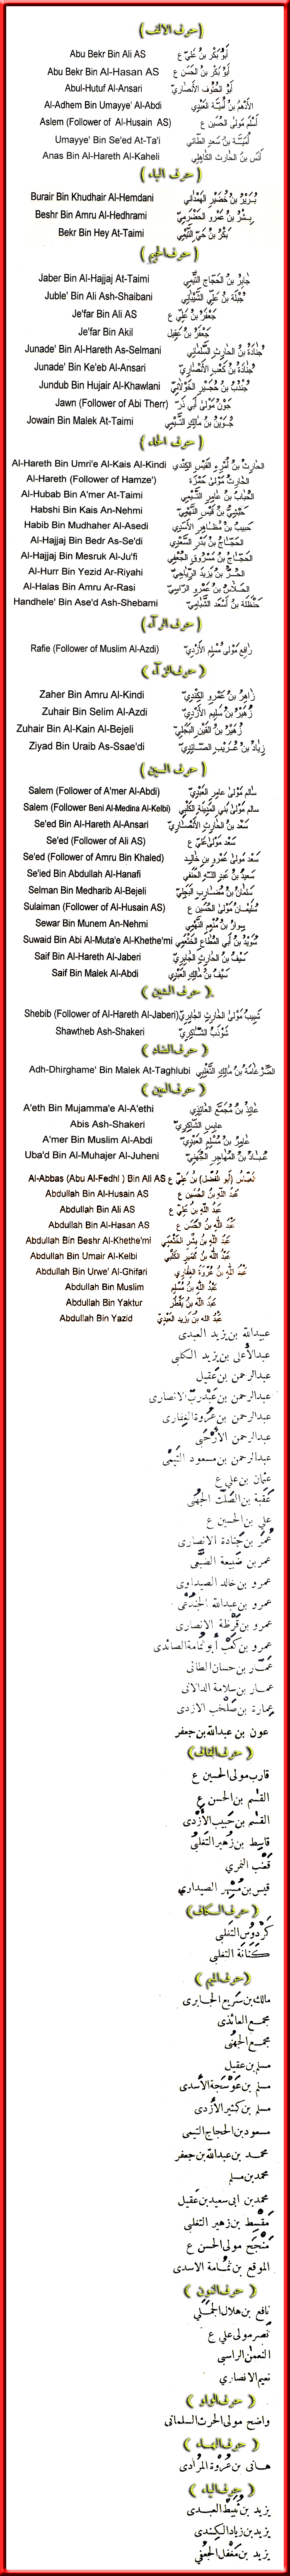 (حرف الالف)
Abu Bekr Bin Ali AS أَبُو بَكْرِ بنُ عَلِيّ ع
Abu Bekr Bin Al-Hasan AS أَبُو بَكْرِ بنُ الحَسَنِ ع
Abul-Hutuf Al-Ansari أَبُو الحُتُوفِ الأَنْصارِيّ
Al-Adhem Bin Umayye' Al-Abdi الأَدْهَمُ بنُ أُمَيَّةَ العَبْدِيّ
Aslem (Follower of Al-Husain AS) أَسْلَمُ مَوْلىٰ الحُسَينِ ع
Umayye' Bin Se'ed At-Ta'i أُمَيَّةُ بنُ سَعدٍ الطّائي
Anas Bin Al-Hareth Al-Kaheli أَنَسُ بنُ الحارِثِ الكاهِلِيّ
(حرف الباء)
Burair Bin Khudhair Al-Hemdani بُرَيْرُ بنُ خُضَيْرٍ الهَمْدانِي
Beshr Bin Amru Al-Hedhrami بِشْرُ بنُ عَمْرو الحَضْرَمِيّ
Bekr Bin Hey At-Taimi بَكْرُ بنُ حَيّ التَّيْمِيّ
(حرف الجيم)
Jaber Bin Al-Hajjaj At-Taimi جابِرُ بنُ الحَجّاجِ التَّيْمِي
Juble' Bin Ali Ash-Shaibani جُبْلَةُ بنُ عَلِيّ الشَّيْبانِي
Je'far Bin Ali AS جَعْفَرُ بنُ عَلِيّ ع
Je'far Bin Akil جَعْفَرُ بنُ عَقِيل
Junade' Bin Al-Hareth As-Selmani جُنادَةُ بنُ الحارِثِ السَّلْمانِيّ
Junade' Bin Ke'eb Al-Ansari جُنادَةُ بنُ كَعْبٍ الأَنْصارِيّ
Jundub Bin Hujair Al-Khawlani جُنْدُبُ بنُ حُجَيْرٍ الخَوْلانِيّ
Jawn (Follower of Abi Therr) جَوْنُ مَوْلىٰ أَبِي ذَرّ
Jowain Bin Malek At-Taimi جُوَيْنُ بنُ مالِكٍ التَّيْمِي
(حرف الحاء)
Al-Hareth Bin Umri'e Al-Kais Al-Kindi الحارِثُ بنُ امْرِءِ القَيْسِ الكِنْدِي
Al-Hareth (Follower of Hamze') الحارِثُ مَوْلىٰ حَمْزَة
Al-Hubab Bin A'mer At-Taimi الحُبابُ بنُ عامِرٍ التَّيْمِي
Habshi Bin Kais An-Nehmi حَبْشِيُّ بنُ قَيْسٍ النَّهْمِيّ
Habib Bin Mudhaher Al-Asedi حَبِيبُ بنُ مُظاهِرٍ الأَسَدِيّ
Al-Hajjaj Bin Bedr As-Se'di الحَجّاجُ بنُ بَدْرٍ السَّعْدِي
Al-Hajjaj Bin Mesruk Al-Ju'fi الحَجّاجُ بنُ مَسْرُوقٍ الجُعْفِي
Al-Hurr Bin Yezid Ar-Riyahi الحُرُّ بنُ يَزِيدَ الرِّياحِيّ
Al-Halas Bin Amru Ar-Rasi الحَلّاسُ بنُ عَمْرو الرّاسِبِيّ
Handhele' Bin Ase'd Ash-Shebami حَنْظَلَةُ بنُ أَسْعَدَ الشَّبامِيّ
(حرف الراء)
Rafie (Follower of Muslim Al-Azdi) رافِع مَوْلىٰ مُسْلِمٍ الأَزْدِيّ
(حرف الزاء)
Zaher Bin Amru Al-Kindi زاهِرُ بنُ عَمْرو الكِنْدِيّ
Zuhair Bin Selim Al-Azdi زُهَيْرُ بنُ سُلَيْمٍ الأَزْدِيّ
Zuhair Bin Al-Kain Al-Bejeli زُهَيْرُ بنُ القَيْنِ البَجَلِيّ
Ziyad Bin Uraib As-Ssae'di زِيادُ بنُ عُرَيْبٍ الصّائِدِيّ
(حرف السين)
Salem (Follower of A'mer Al-Abdi) سالِم مَوْلىٰ عامِرٍ العَبْدِيّ
Salem (Follower Beni Al-Medina Al-Kelbi) سالِم مَوْلىٰ بَنِي المَدِينَةِ الكَلْبِي
Se'ed Bin Al-Hareth Al-Ansari سَعْد بنُ الحارِثِ الأَنْصارِيّ
Se'ed (Follower of Ali AS) سَعْد مَوْلىٰ عَلِيّ ع
Se'ed (Follower of Amru Bin Khaled) سَعْد مَوْلىٰ عَمْرو بنِ خالِد
Se'ied Bin Abdullah Al-Hanafi سَعِيدُ بنُ عَبدِ اللهِ الحَنَفي
Selman Bin Medharib Al-Bejeli سَلْمانُ بنُ مُضارِبٍ البَجَلِيّ
Sulaiman (Follower of Al-Husain AS) سُلَيْمانُ مَوْلىٰ الحُسَيْنِ ع
Sewar Bin Munem An-Nehmi سِوارُ بنُ مُنْعِمٍ النَّهْمِي
Suwaid Bin Abi Al-Muta'e Al-Khethe'mi سُوَيْدُ بنُ أَبِي المُطاعِ الخَثْعَمِي
Saif Bin Al-Hareth Al-Jaberi سَيْفُ بنُ الحارِثِ الجابِرِيّ
Saif Bin Malek Al-Abdi سَيْفُ بنُ مالِكٍ العَبْدِي
(حرف الشين)
Shebib (Follower of Al-Hareth Al-Jaberi) شَبِيبُ مَوْلىٰ الحارِثِ الجابِرِيّ
Shawtheb Ash-Shakeri شَوْذَبُ الشّاكِرِيّ
(حرف الضاد)
Adh-Dhirghame' Bin Malek At-Taghlubi الضِّرْغامَةُ بنُ مالِكٍ التَّغْلِبِي
(حرف العين)
A'eth Bin Mujamma'e Al-A'ethi عائِذُ بنُ مُجَمَّعٍ العائِذِي
Abis Ash-Shakeri عابِس الشّاكِرِيّ
A'mer Bin Muslim Al-Abdi عامِرُ بنُ مُسْلِمٍ العَبْدِيّ
Uba'd Bin Al-Muhajer Al-Juheni عَبّادُ بنُ المُهاجِرِ الجُهَنِيّ
Al-Abbas (Abu Al-Fedhl ) Bin Ali AS العَبّاسُ (أَبو الفَضْلِ) بنُ عَلِيّ ع
Abdullah Bin Al-Husain AS عَبْدُ اللهِ بنُ الحُسَيْنِ ع
Abdullah Bin Ali AS عَبْدُ اللهِ بنُ عَلِيّ ع
Abdullah Bin Al-Hasan AS عَبْدُ اللهِ بنُ الحَسَنِ ع
Abdullah Bin Beshr Al-Khethe'mi عَبْدُ اللهِ بنُ بِشْرٍ الخَثْعَمِي
Abdullah Bin Umair Al-Kelbi عَبْدُ اللهِ بنُ عُمَيْرٍ الكَلْبِي
Abdullah Bin Urwe' Al-Ghifari عَبْدُ اللهِ بنُ عُرْوَةَ الغِفارِيّ
Abdullah Bin Muslim عَبْدُ اللهِ بنُ مُسْلِم
Abdullah Bin Yaktur عَبْدُ اللهِ بنُ يَقْطُر
Abdullah Bin Yazid عَبْدُ اللهِ بنُ يَزِيدَ العَبْدِيّ
عبيدالله بن يزيد العبدى
عبدالأعلى بن يزيد الكلبى
عبدالرحمن بن عقيل
عبدالرحمن بن عَبْدِرَبّ الانصارى
عبدالرحمن بن عُروة الغِفارى
عبدالرحمن الأَرْحَبى
عبدالرحمن بن مسعود التَيْمى
عثمان بن علي ع
عَقَبة بن الصَّلْت الجُهَنى
علي بن الحسين ع
عُمَر بن جَنادة الانصارى
عمر بن ضَبيعة الضَّبَعى
عمرو بن خالد الصيداوى
عمرو بن عبدالله الجُنْدُعى
عمرو بن قَرَظة الانصارى
عمرو بن كَعْب أبو ثُمامة الصائدى
عَمّار بن حسان الطائى
عمار بن سلامة الدالانى
عِمارة بن صَلْخَب الازدى
عون بن عبدالله بن جعفر
(حرف القاف)
قارب مولى الحسين ع
القاسم بن الحسن ع
القاسم بن حَبيب الأَزْدى
قاسِط بن زُهير التَغلبى
قَعْنَب النمرى
قيس بن مُسْهِر الصيداوى
(حرف الكاف)
كَرْدوس التَغلبى
كِنانَة التغلبى
(حرف الميم)
مالك بن سَريع الجابرى
مجمع العائذى
مجمع الجُهَنى
مسلم بن عقيل
مسلم بن عَوْسَجة الأسدى
مسلم بن كثير الأزدى
مسعود بن الحجاج التيمى
محمد بن عبدالله بن جعفر
محمد بن مسلم
محمد بن ابى سعيد بن عقيل
مُقْسِط بن زهير التغلبى
مُنْجَح مولى الحسن ع
الموقع بن ثُمامة الاسدى
(حرف النون)
نافع بن هلال الجَمَلي
نَصْر مولى علي ع
النعمن الراسبى
نعيم الانصارى
(حرف الواو)
واضح مولى الحرث السلمانى
(حرف الهاء)
هانى بن عُرْوة المُرادى
(حرف الياء)
يزيد بن ثُبَيْط العبدى
يزيد بن زياد الكندى
يزيد بن مَغْفَل الجُعْفى